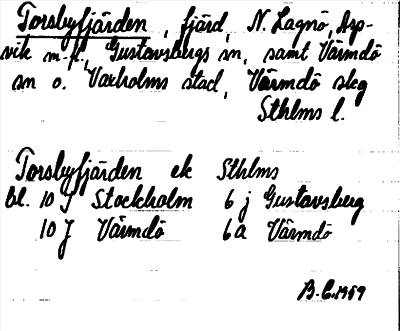 Torsbyfjärden, fjärd, N. Lagnö, Asp-
vik m.fl., Gustavsbergs sn, samt Värmdö
sn o. Vaxholms stad, Värmdö slg
Sthlms l.
Torsbyfjärden ek Sthlms
bl. 10 J Stockholm 6 j Gustavsberg
10 J Värmdö 6a Värmdö
B.C. 1959